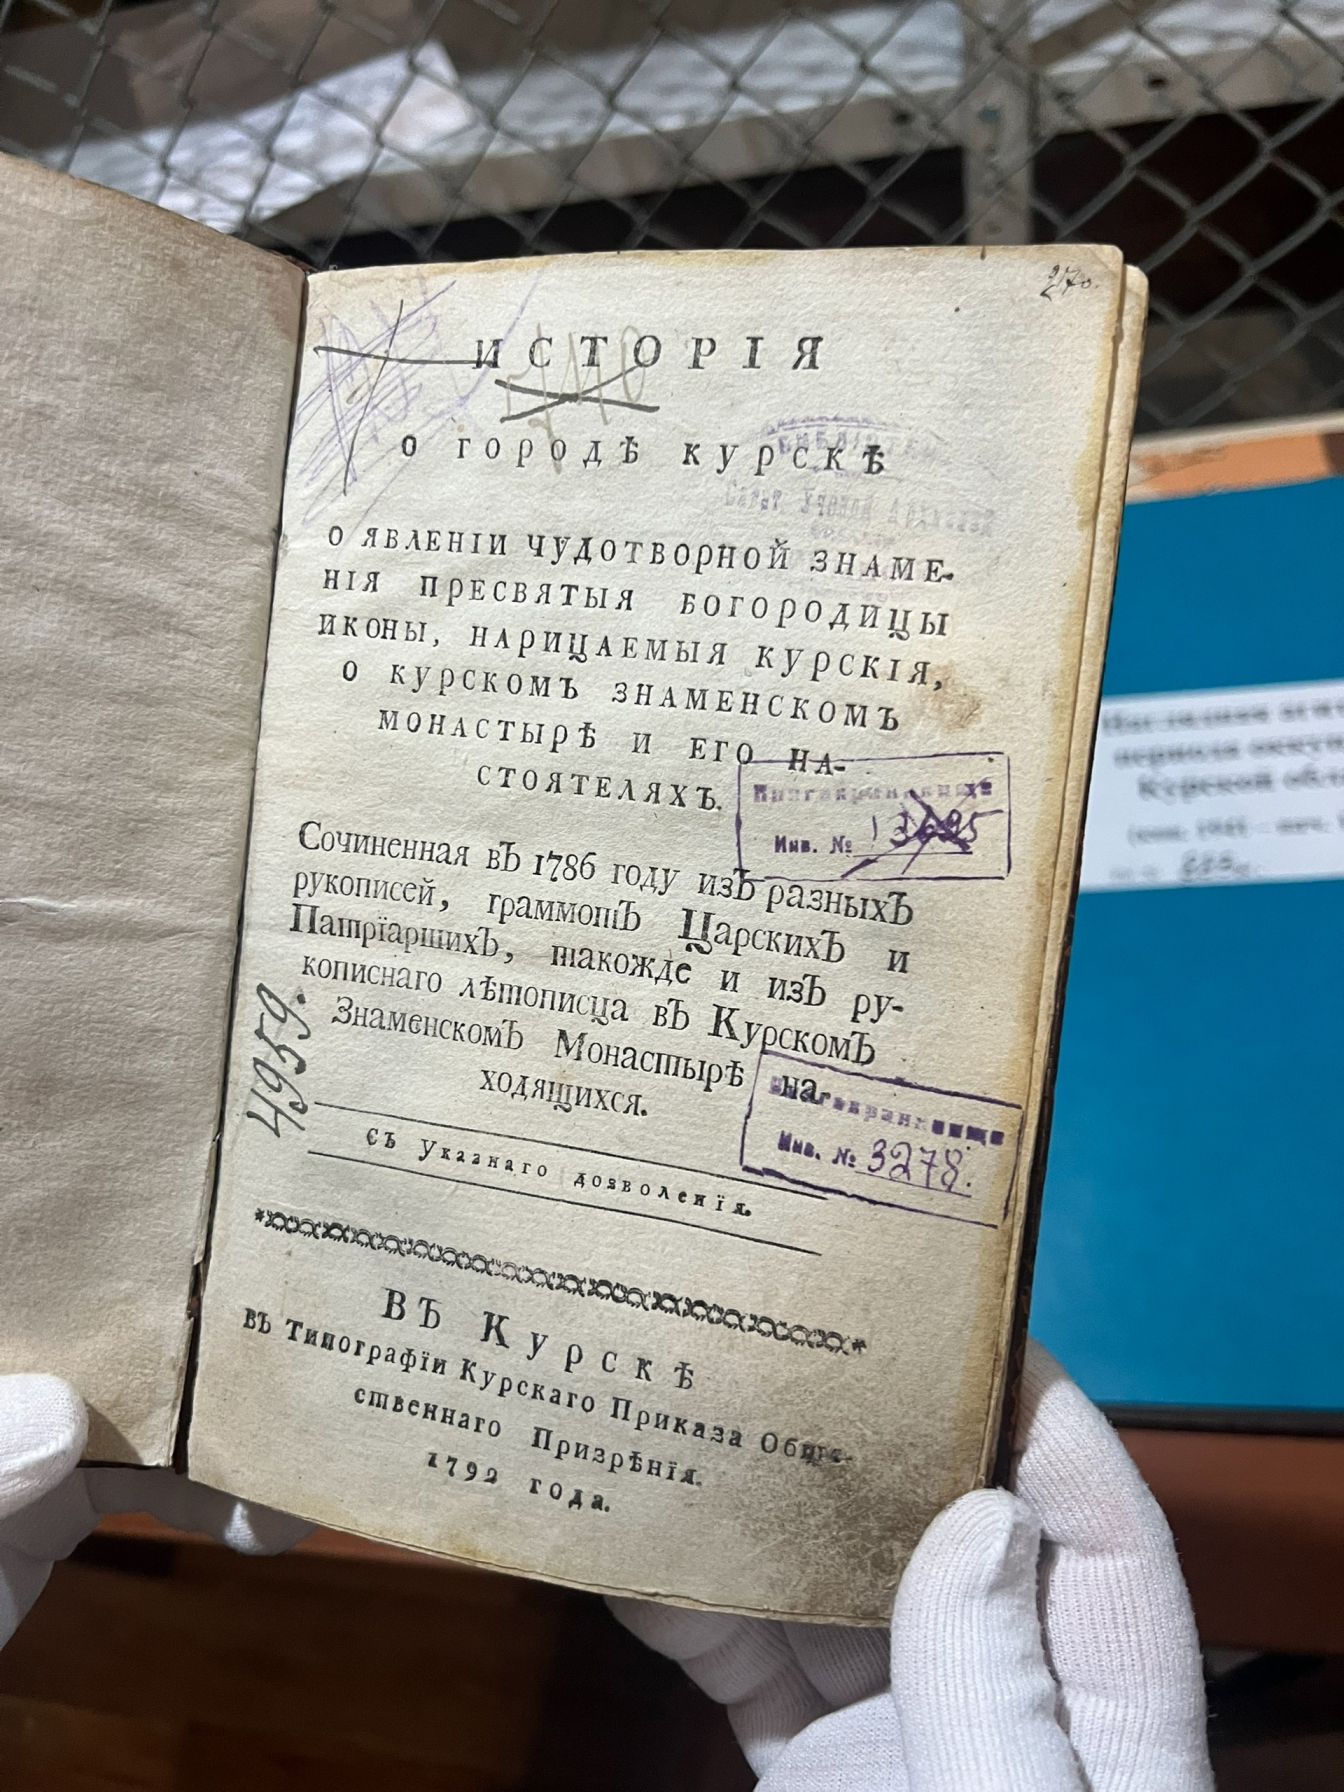 270.
ИСТОРІЯ
О ГОРОДѢ КУРСКѢ
О ЯВЛЕНІИ ЧУДОТВОРНОЙ ЗНАМЕ-
НІЯ ПРЕСВЯТЫЯ БОГОРОДИЦЫ
ИКОНЫ, НАРИЦАЕМЫЯ КУРСКІЯ,
О КУРСКОМЪ ЗНАМЕНСКОМЪ
МОНАСТЫРѢ И ЕГО НА-
СТОЯТЕЛЯХЪ.
Книгохранилище
Инв. № 13695
Сочиненная вЪ 1786 году изЪ разныхЪ
рукописей, граммотЪ ЦарскихЪ и
ПатрїаршихЪ, такожде и изЪ ру-
кописнаго лѣтописца вЪ КурскомЪ
ЗнаменскомЪ Монастырѣ на-
ходящихся.
4959.
Книгохранилище
Инв. № 3278.
СЪ Указнаго дозволенїя.
ВЪ Курскѣ
вЪ Типографїи Курскаго Приказа Обще-
ственнаго Призрѣнїя.
1792 года.
Курской обла